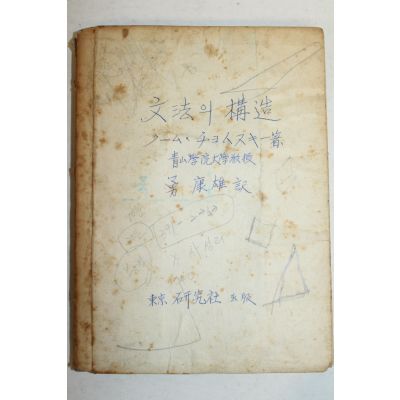 文法의 構造
ノーム・チョムスキー著
青山學院大學敎授
勇 康雄 訳
371-2250
東京 研究社 出版